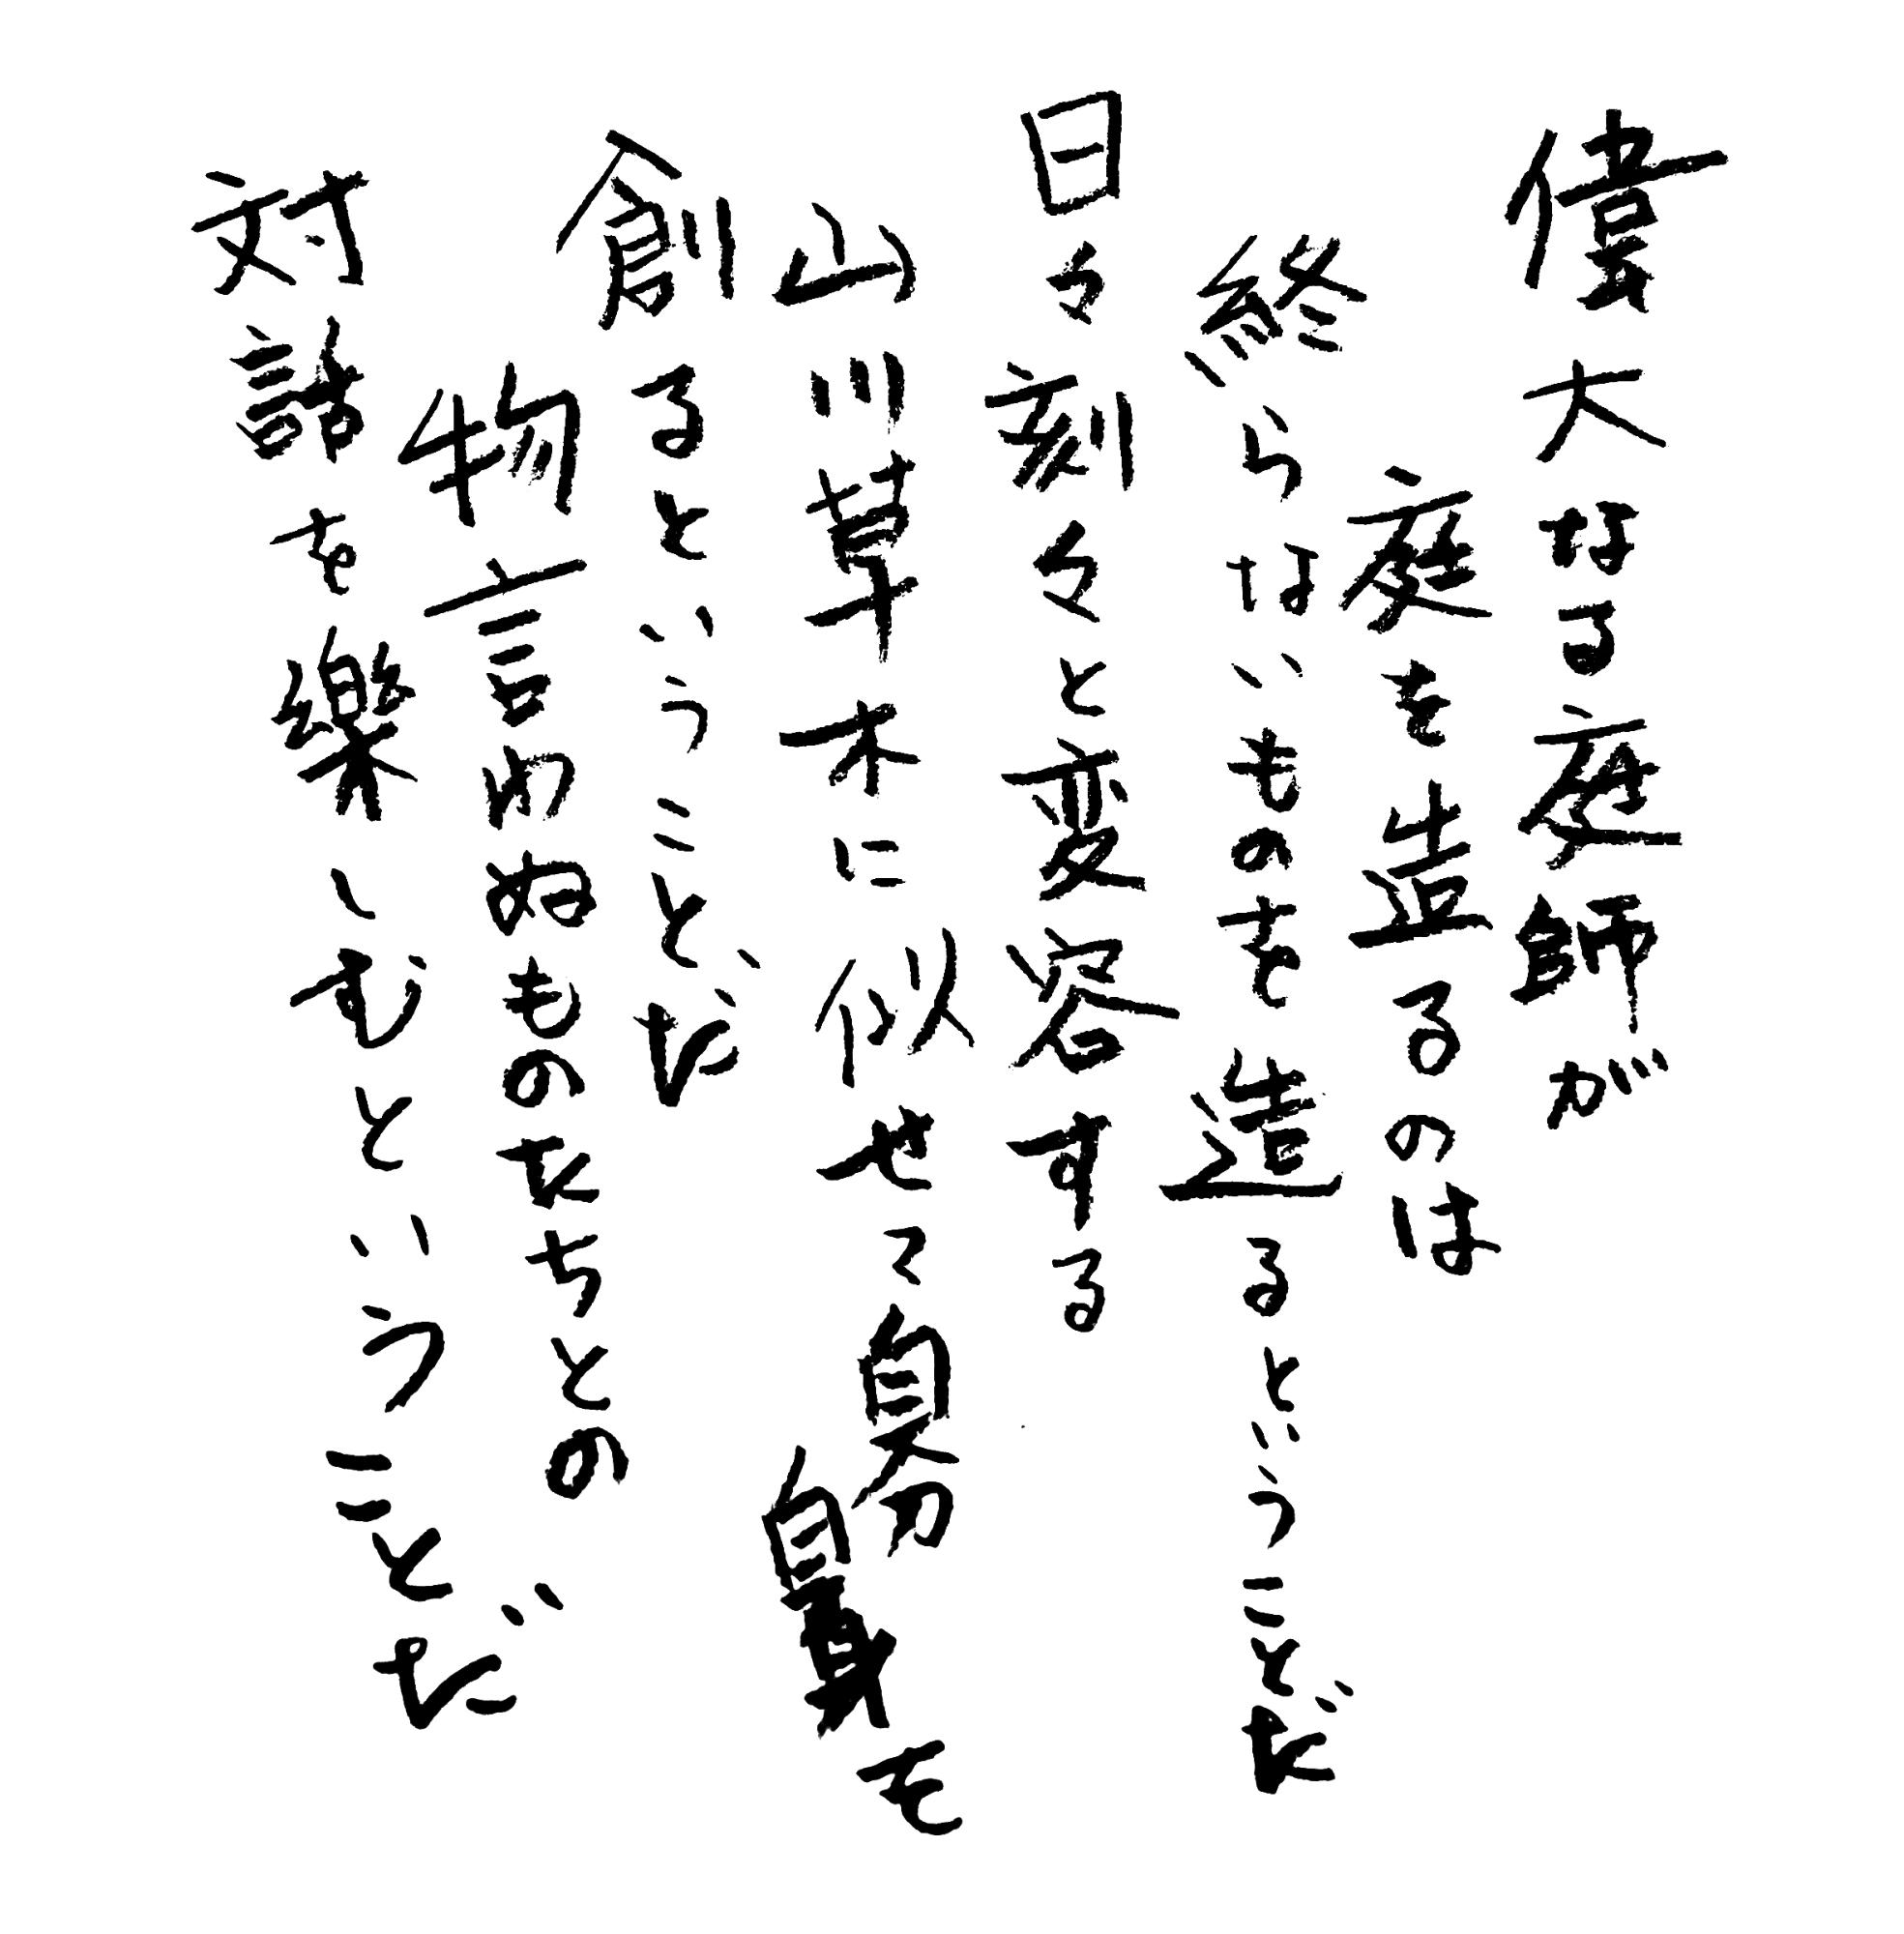 偉大なる庭師が
庭を造るのは
終らないものを造るということだ
日々刻々と変容する
山川草木に似せて自分自身も
創るということだ
物言わぬものたちとの
対話を樂しむということだ